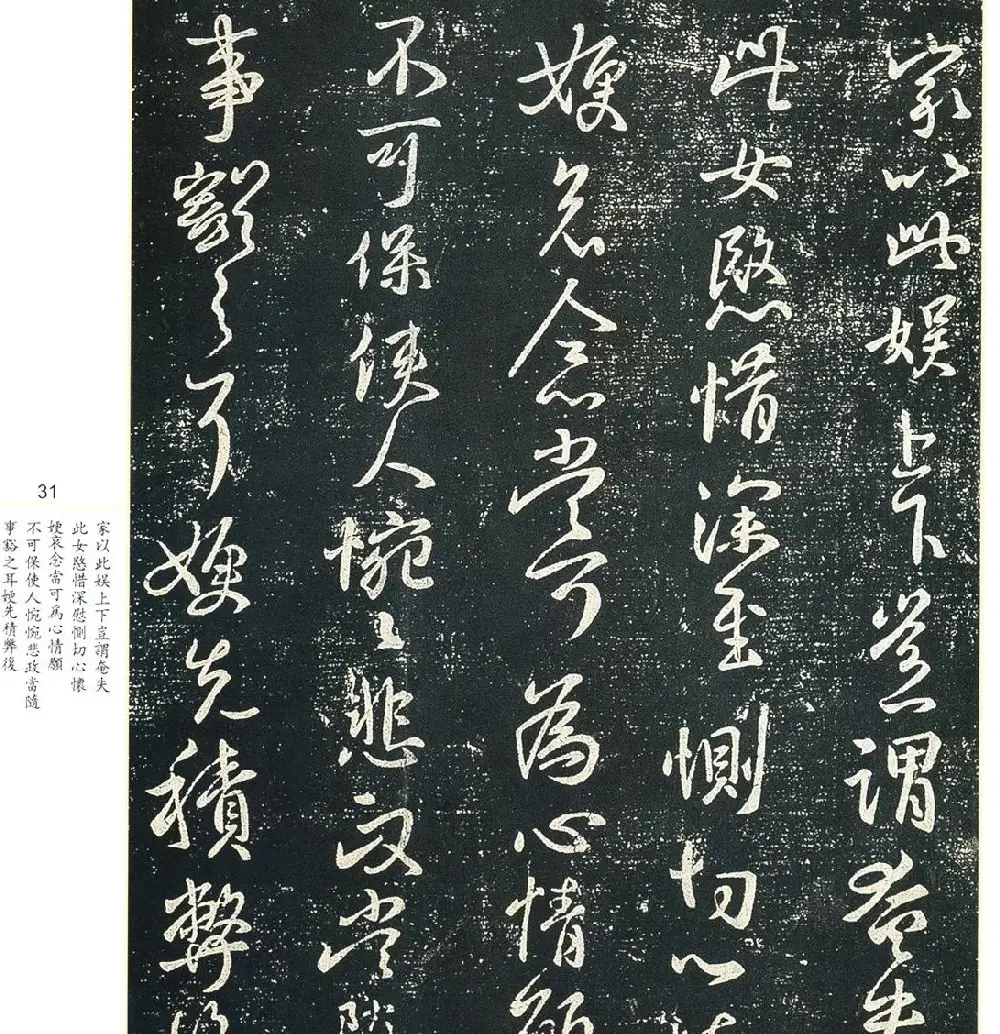 家以此娱上下豈謂奄失
此女愍惜深至惻切心懷
娌哀念當可為心情願
不可保使人惋惋悲政當隨
事豁之耳娌先積弊復
31
家以此娱上下豈謂奄失
此女愍惜深慰惻切心懷
娌哀念當可為心情願
不可保使人惋惋悲政當隨
事豁之耳娌先積弊復